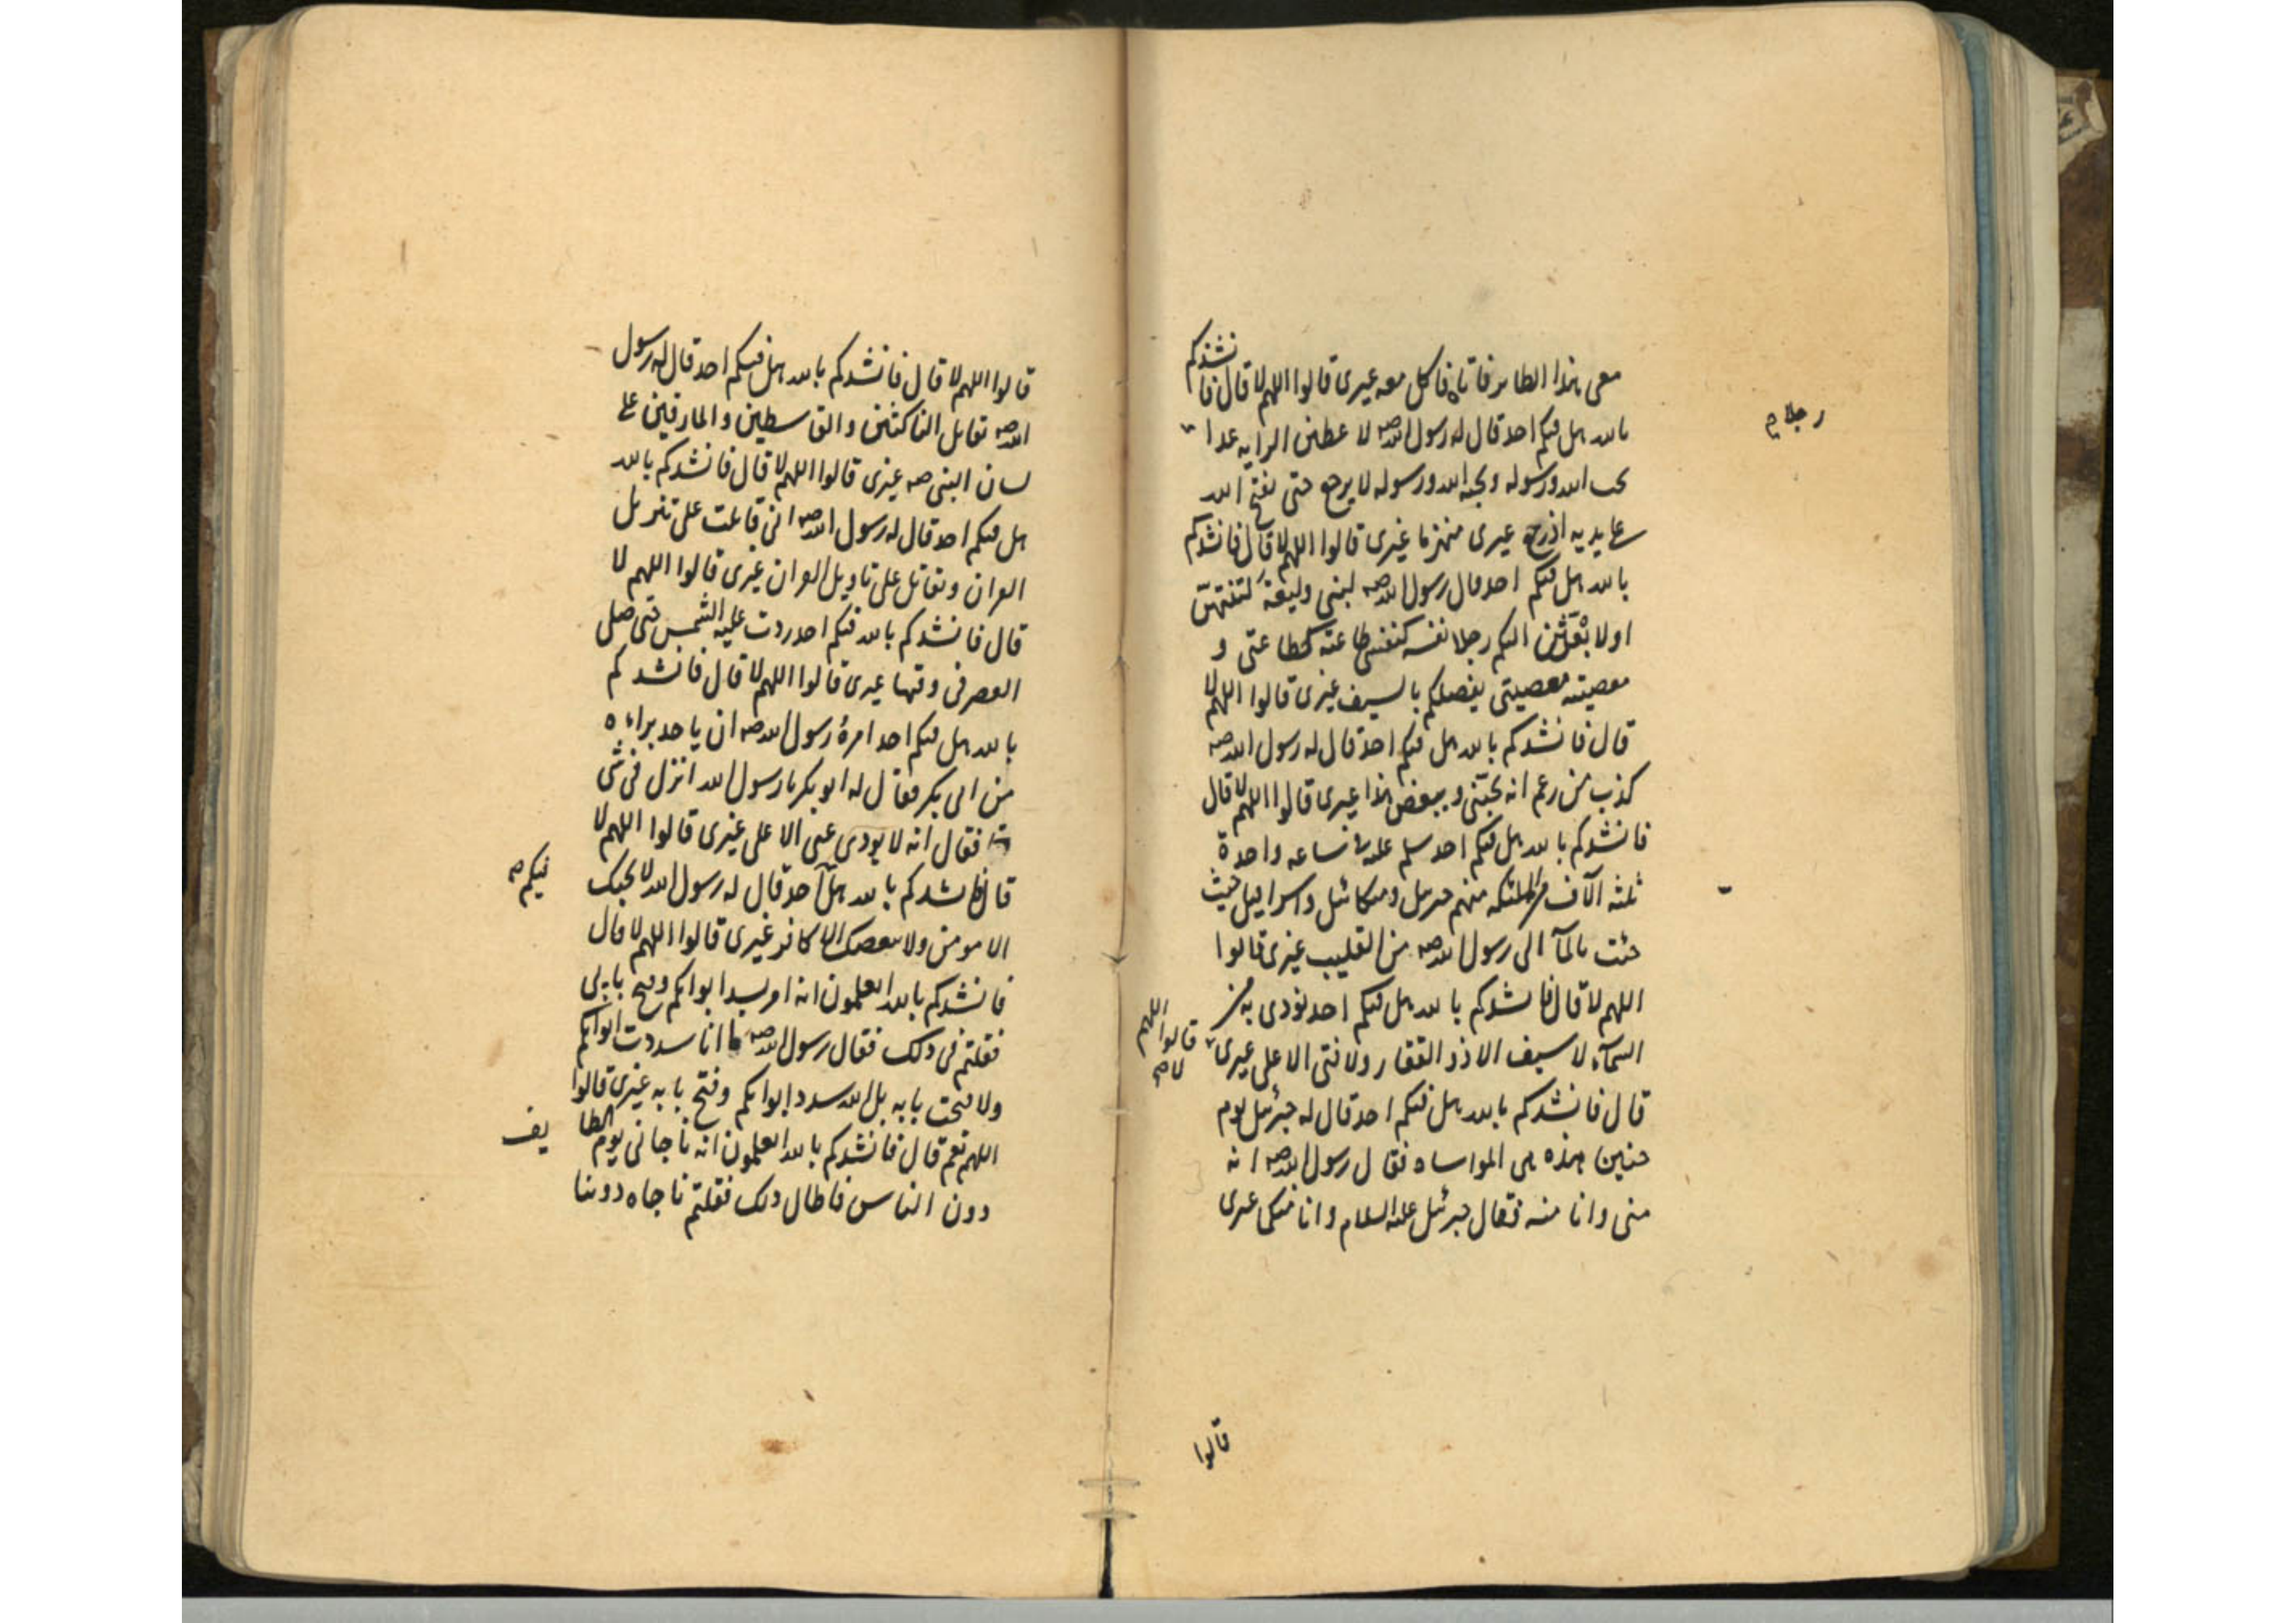 معى هذا الطاير فاتاه فاكل معه غيرى قالوا اللهم لا قال فانشدكم
بالله هل فيكم احد قال له رسول الله صه لا عطين الرايه غدا
رجلا صح
يحب الله ورسوله ويحبه الله ورسوله لا يرجع حتى يفتح الله
على يديه اذ رجع غيرى منهزما غيرى قالوا اللهم لا قال فانشدكم
بالله هل فيكم احد قال رسول الله صه لبنى وليعة لتنتهن
او لا بعثن اليكم رجلا نفسه كنفسى طاعته كطاعتى و
معصيته معصيتى يفصلكم بالسيف غيرى قالوا اللهم لا
قال فانشدكم بالله هل فيكم احد قال له رسول الله صه
كذب من زعم انه يحبنى ويبغض هذا غيرى قالوا اللهم لا قال
فانشدكم بالله هل فيكم احد سلم عليه فى ساعه واحدة
ثلثه آلاف من الملئكه منهم جبرئيل وميكائيل واسرافيل حيث
جئت بالمآ الى رسول الله صه من القليب غيرى قالوا
اللهم لا قال فانشدكم بالله هل فيكم احد نودى به من
السمآء لا سيف الا ذو الفقار ولا فتى الا على غيرى
قالوا اللهم لا صح
قال فانشدكم بالله هل فيكم احد قال له جبرئيل يوم
حنين هذه هى المواساه فقال رسول الله صه انه
منى وانا منه فقال جبرئيل عليه السلام وانا منكما غيرى
قالوا
قالوا اللهم لا قال فانشدكم بالله هل فيكم احد قال له رسول
الله صه تقاتل الناكثين والقاسطين والمارقين على
لسان النبى صه غيرى قالوا اللهم لا قال فانشدكم بالله
هل فيكم احد قال له رسول الله صه انى قاتلت على تنزيل
القران وتقاتل على تاويل القران غيرى قالوا اللهم لا
قال فانشدكم بالله فيكم احد ردت عليه الشمس حتى صلى
العصر فى وقتها غيرى قالوا اللهم لا قال فانشدكم
بالله هل فيكم احد امره رسول الله صه ان ياخذ براءه
من ابى بكر فقال له ابو بكر يا رسول الله انزل فى شى
فقال انه لا يودى عنى الا على غيرى قالوا اللهم لا
قال فانشدكم بالله هل احد قال له رسول الله لا يحبك
فيكم صح
الا مومن ولا يبغضك الا كافر غيرى قالوا اللهم لا قال
فانشدكم بالله اتعلمون انه امر بسد ابوابكم وفتح بابى
فقلتم فى ذلك فقال رسول الله صه ما انا سددت ابوابكم
ولا فتحت بابه بل الله سد ابوابكم وفتح بابه غيرى قالوا
اللهم نعم قال فانشدكم بالله اتعلمون انه ناجانى يوم الطا
يف
دون الناس فاطال ذلك فقلتم ناجاه دوننا